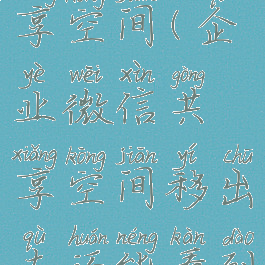 享空间(企
yè wēi xìn gòng
业微信共
xiǎng kōng jiān yí chū
享空间移出
qù huán néng kàn dào